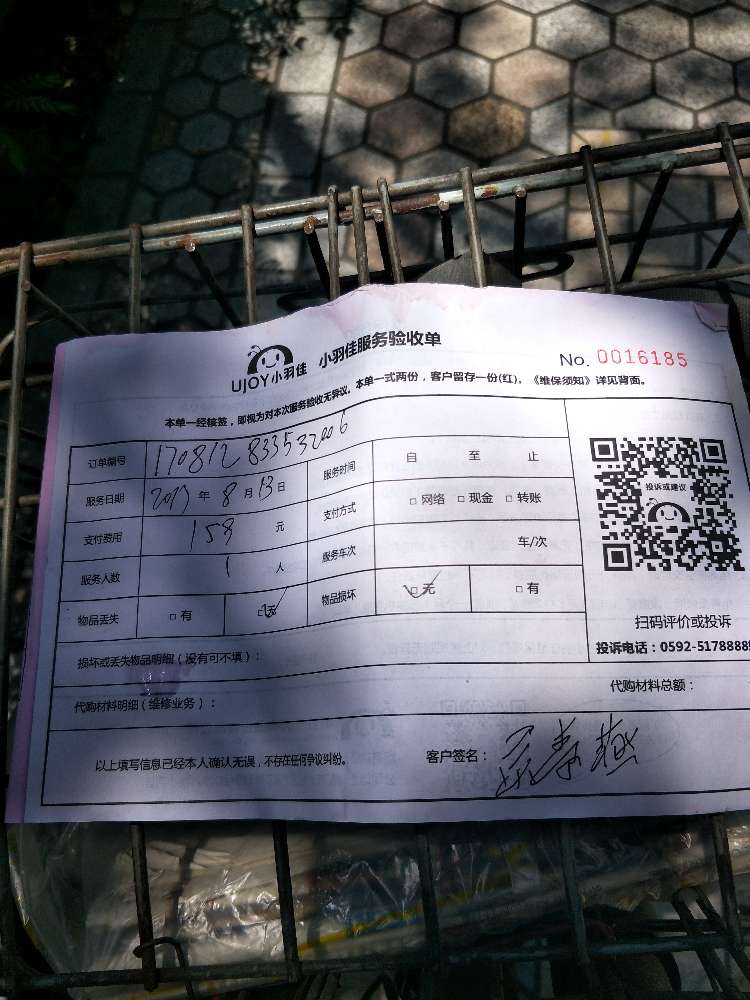 UJOY小羽佳 小羽佳服务验收单
No. 0016185
本单一经核签，即视为对本次服务验收无异议。本单一式两份，客户留存一份(红)。《维保须知》详见背面。
订单编号 170812833532006 服务时间 自 至 止
服务日期 2017 年 8 月 13 日 支付方式 □ 网络 □ 现金 □ 转账
支付费用 153 元 服务车次 车/次
服务人数 1 人
物品丢失 □ 有 □ 无 物品损坏 □ 无 □ 有
投诉或建议
扫码评价或投诉
投诉电话：0592-5178888
损坏或丢失物品明细（没有可不填）：
代购材料明细（维修业务）： 代购材料总额：
以上填写信息已经本人确认无误，不存在任何争议纠纷。 客户签名：